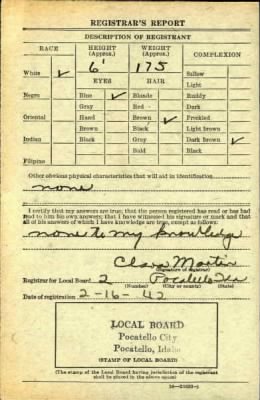 REGISTRAR'S REPORT
DESCRIPTION OF REGISTRANT
RACE HEIGHT (Approx.) WEIGHT (Approx.) COMPLEXION
White ✓ 6' 175 Sallow
EYES HAIR Light
Negro Blue ✓ Blonde Ruddy
Gray Red Dark
Oriental Hazel Brown ✓ Freckled
Brown Black Light brown
Indian Black Gray Dark brown ✓
Bald Black
Filipino
Other obvious physical characteristics that will aid in identification
none
I certify that my answers are true; that the person registered has read or has had
read to him his own answers; that I have witnessed his signature or mark and that
all of his answers of which I have knowledge are true, except as follows:
none to my knowledge
Clara Martin
(Signature of registrar)
Registrar for Local Board 2 Pocatello Ida
(Number) (City or county) (State)
Date of registration 2-16-42
LOCAL BOARD
Pocatello City
Pocatello, Idaho
(STAMP OF LOCAL BOARD)
(The stamp of the Local Board having jurisdiction of the registrant
shall be placed in the above space)